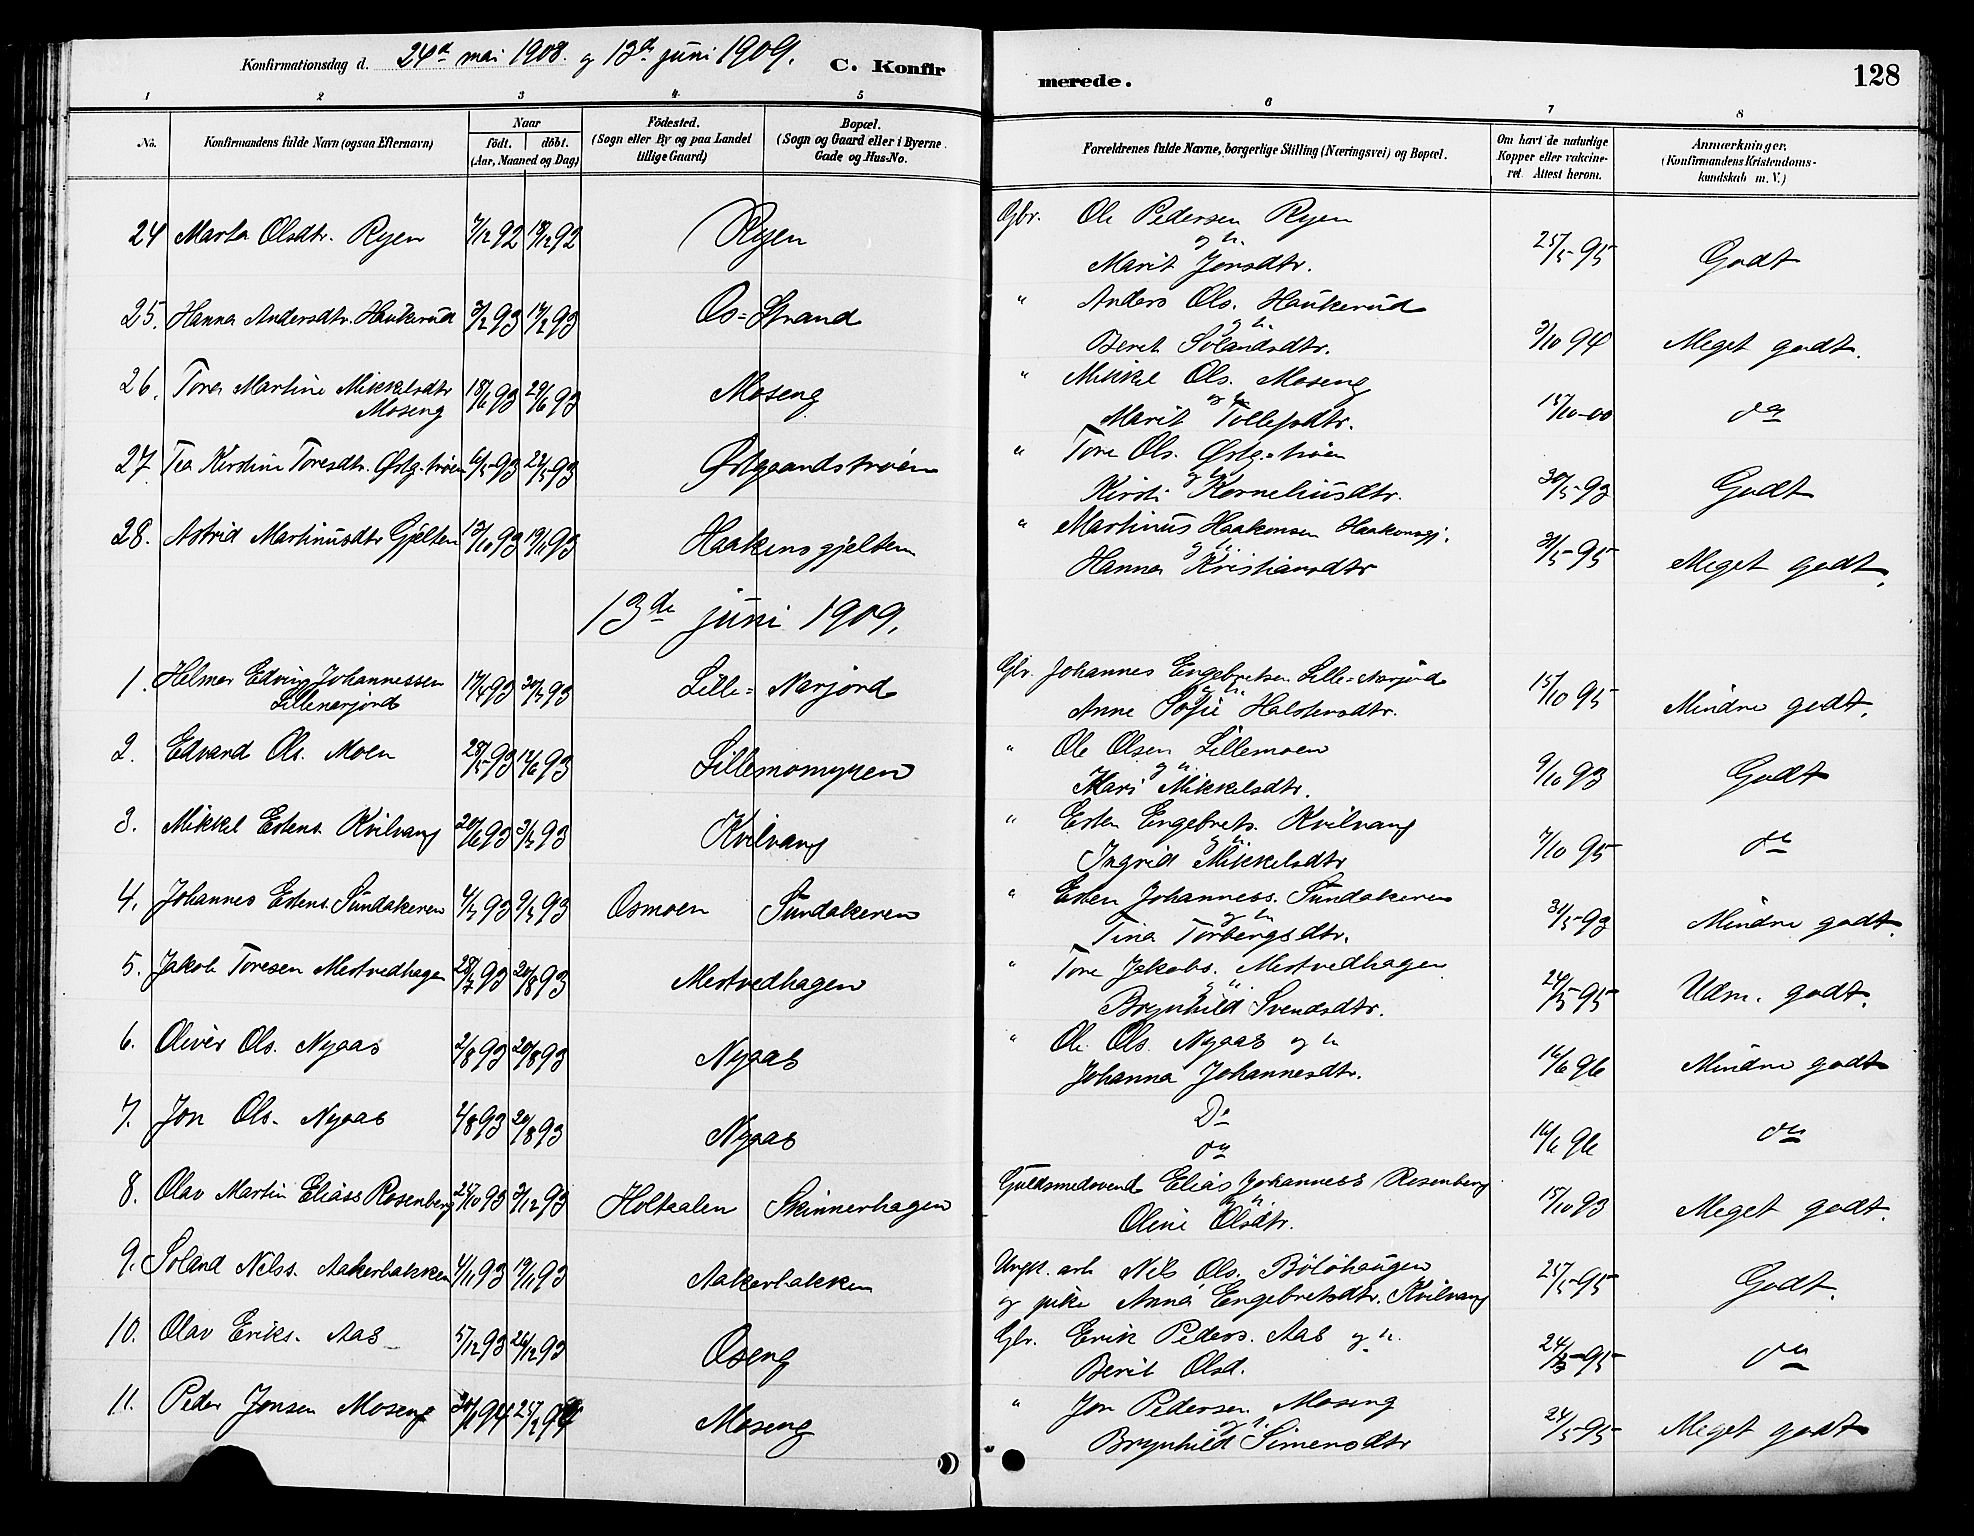 Konfirmationsdag d. 24de mai 1908. og 13de juni 1909. C. Konfirmerede. 128
1 2 3 4 5 6 7 8
No. Konfirmandens fulde Navn (ogsaa Efternavn) Naar födt. döbt. (Aar, Maaned og Dag) Födested. (Sogn eller By og paa Landet tillige Gaard) Bopæl. (Sogn og Gaard eller i Byerne Gade og Hus-No. Forældrenes fulde Navne, borgerlige Stilling (Næringsvei) og Bopæl. Om havt de naturlige Kopper eller vakcineret. Attest herom. Anmærkninger. (Konfirmandens Kristendomskundskab m. V.)
24 Marta Olsdtr. Ryen 7/12 92 18/12 92 Ryen Gbr. Ole Pedersen Ryen og h. Marit Jonsdtr. 25/5-95 Godt
25. Hanna Andersdtr. Haukerud 3/2 93 19/2 93 Os=Strand " Anders Ols. Haukerud og h. Beret Solandsdtr. 3/10 94 Meget godt.
26. Tora Martine Mikkelsdtr Moseng 18/6 93 29/6 93 Moseng " Mikkel Ols. Moseng og h. Marit Tollefsdtr. 15/10-00 do
27 Tea Kirstine Toresdtr. Østg.trøen 6/5-93 22/5 93 Østgaardstrøen " Tore Ols. Østg.trøen og h. Kirsti Korneliusdtr. 30/5-93 Godt
28. Astrid Martinusdtr Gjelten 13/10 93 19/11 93 Haakensgjelten " Martinus Haakonsen Haakonsgj. og h. Hanna Kristiansdtr 31/5-95 Meget godt.
13de juni 1909.
1. Helmer Edvin Johannessen Lillenarjord 17/4 93 Lille=Narjord Gbr. Johannes Engebretsen Lille=Narjord og h. Anne Sofie Halstensdtr. 15/10 95 Mindre godt.
2. Edvard Ols. Moen 28/5-93 14/6 93 Lillemomyren " Ole Olsen Lillemoen og h. Mari Mikkelsdtr. 9/10 93 Godt
3. Mikkel Estens. Kvilvang 20/6 93 Kvilvang " Esten Engebrets. Kvilvang og h. Ingrid Mikkelsdtr 7/10 95 do
4. Johannes Estens. Sundakeren 93 93 Osmoen Sundakeren " Esten Johanness. Sundakeren og h. Tina Torbergsdtr. 31/5-93 Mindre godt.
5. Jakob Toresen Mestvedhagen 28/7 93 20/8 93 Mestvedhagen " Tore Jakobs. Mestvedhagen og h. Brynhild Svendsdtr. 24/5-95 Udm. godt.
6. Oliver Ols. Nyaas 2/8 93 20/8 93 Nyaas " Ole Ols. Nyaas og h Johanna Johannesdtr. 16/6 96 Mindre godt
7. Jon Ols. Nyaas 2/8 93 20/8 93 Nyaas Do do 16/6 96 do
8. Olav Martin Eliass Rosenberg 25/10 93 3/12 93 Holtaalen Skinnerhagen Guldsmedsvend Elias Johanness Rosenberg og h. Oline Olsdtr. 15/10 93 Meget godt.
9. Soland Nilss. Aakerbakken 4/11 93 19/11 93 Aakerbakken Ungk. arb Nils Ols. Bölöhaugen og pike Anna Engebretsdtr. Kvilvang 25/5-95 Godt.
10. Olav Eriks. Aas 5/12 93 26/12 93 Oseng Gbr. Erik Peders. Aas og h. Berit Olsd. 24/5-95 do
11. Peder Jonsen Moseng 30/1 94 25/2 94 Moseng " Jon Pedersen Moseng og h. Brynhild Simensdtr 24/5-95 Meget godt